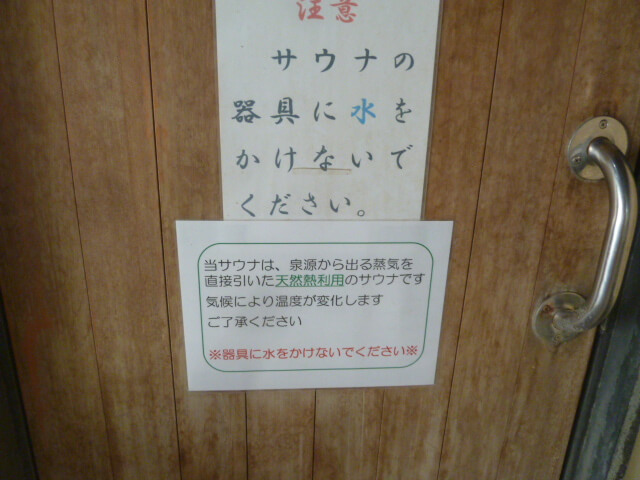 注意
サウナの
器具に水を
かけないで
ください。
当サウナは、泉源から出る蒸気を
直接引いた天然熱利用のサウナです
気候により温度が変化します
ご了承ください
※器具に水をかけないでください※